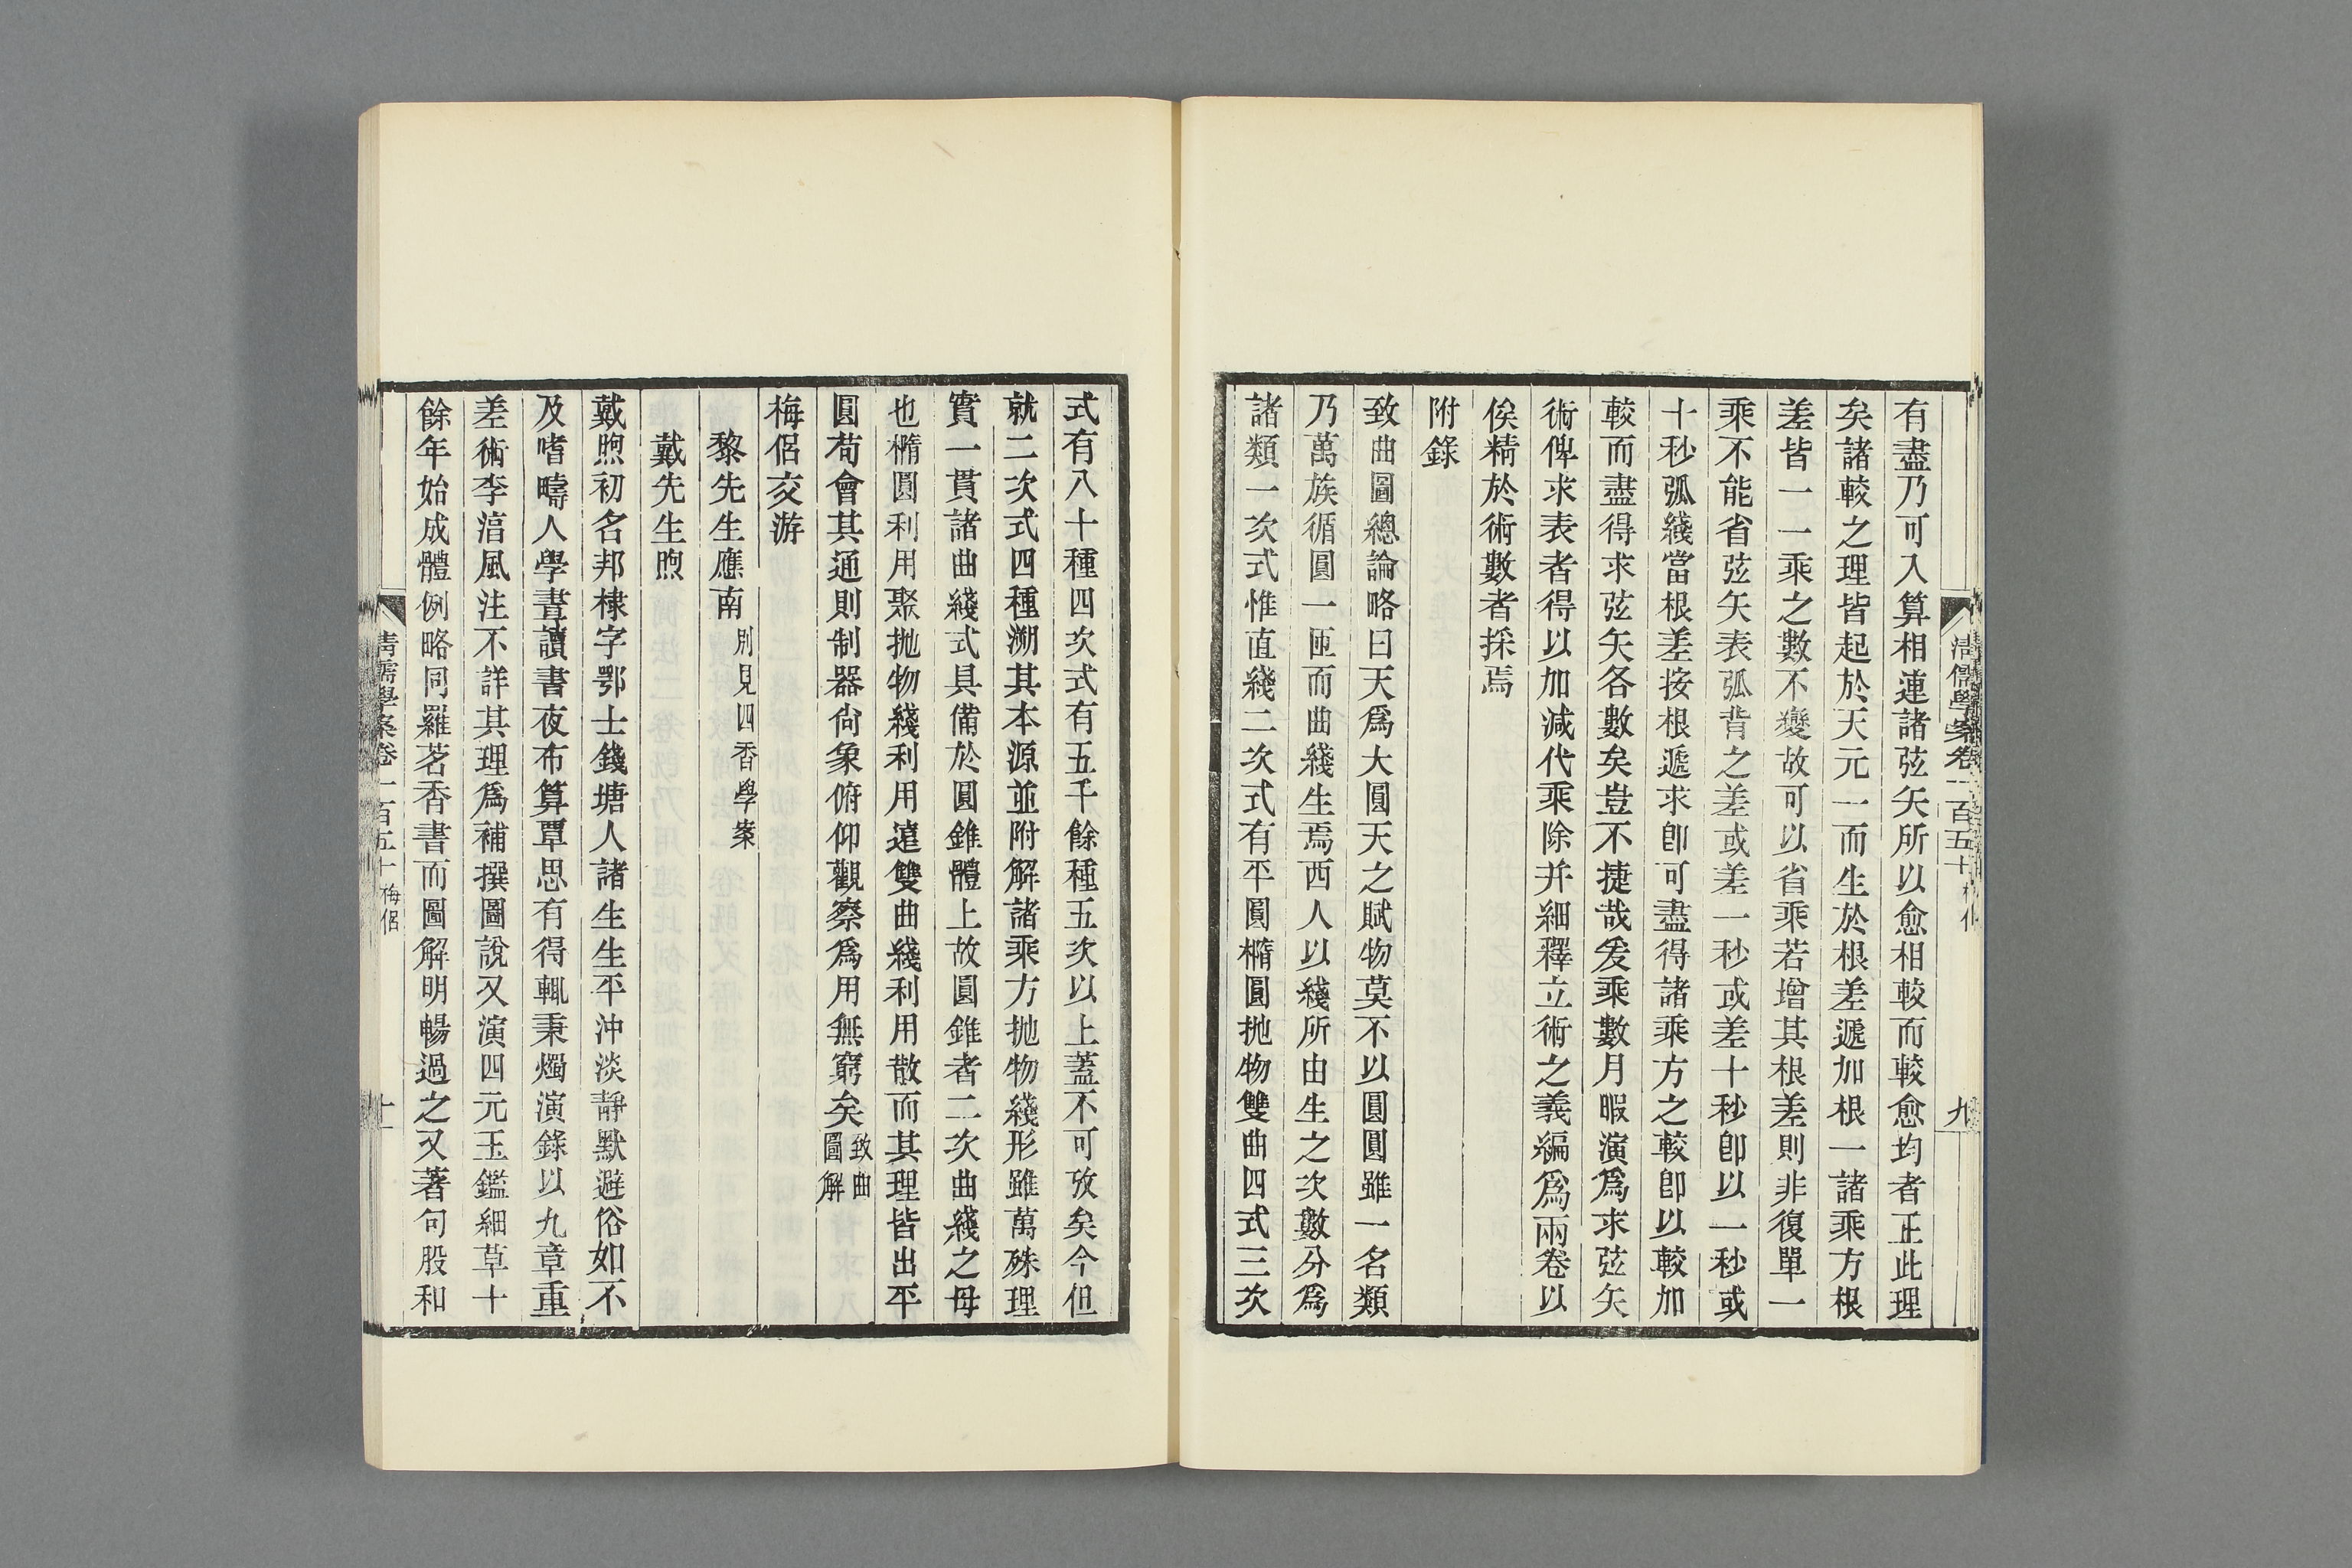 有盡乃可入算相連諸弦矢所以愈相較而較愈均者正此理
矣諸較之理皆起於天元一而生於根差遞加根一諸乘方根
差皆一一乘之數不變故可以省乘若增其根差則非復單一
乘不能省弦矢表弧背之差或差一秒或差十秒卽以一秒或
十秒弧綫當根差按根遞求卽可盡得諸乘方之較卽以較加
較而盡得求弦矢各數矣豈不捷哉爰乘數月暇演爲求弦矢
術俾求表者得以加減代乘除并細釋立術之義編爲兩卷以
俟精於術數者採焉
附錄
致曲圖總論略曰天爲大圓天之賦物莫不以圓圓雖一名類
乃萬族循圓一匝而曲綫生焉西人以綫所由生之次數分爲
諸類一次式惟直綫二次式有平圓橢圓拋物雙曲四式三次
清儒學案卷一百五十
九
式有八十種四次式有五千餘種五次以上蓋不可攷矣今但
就二次式四種溯其本源並附解諸乘方拋物綫形雖萬殊理
實一貫諸曲綫式具備於圓錐體上故圓錐者二次曲綫之母
也橢圓利用聚拋物綫利用遠雙曲綫利用散而其理皆出平
圓苟會其通則制器尙象俯仰觀察爲用無窮矣致曲圖解
梅侶交游
黎先生應南別見四香學案
戴先生煦
戴煦初名邦棣字鄂士錢塘人諸生生平沖淡靜默避俗如不
及嗜疇人學晝讀書夜布算覃思有得輒秉燭演錄以九章重
差術李湻風注不詳其理爲補撰圖說又演四元玉鑑細草十
餘年始成體例略同羅茗香書而圖解明暢過之又著句股和
清儒學案卷一百五十 梅侶
十